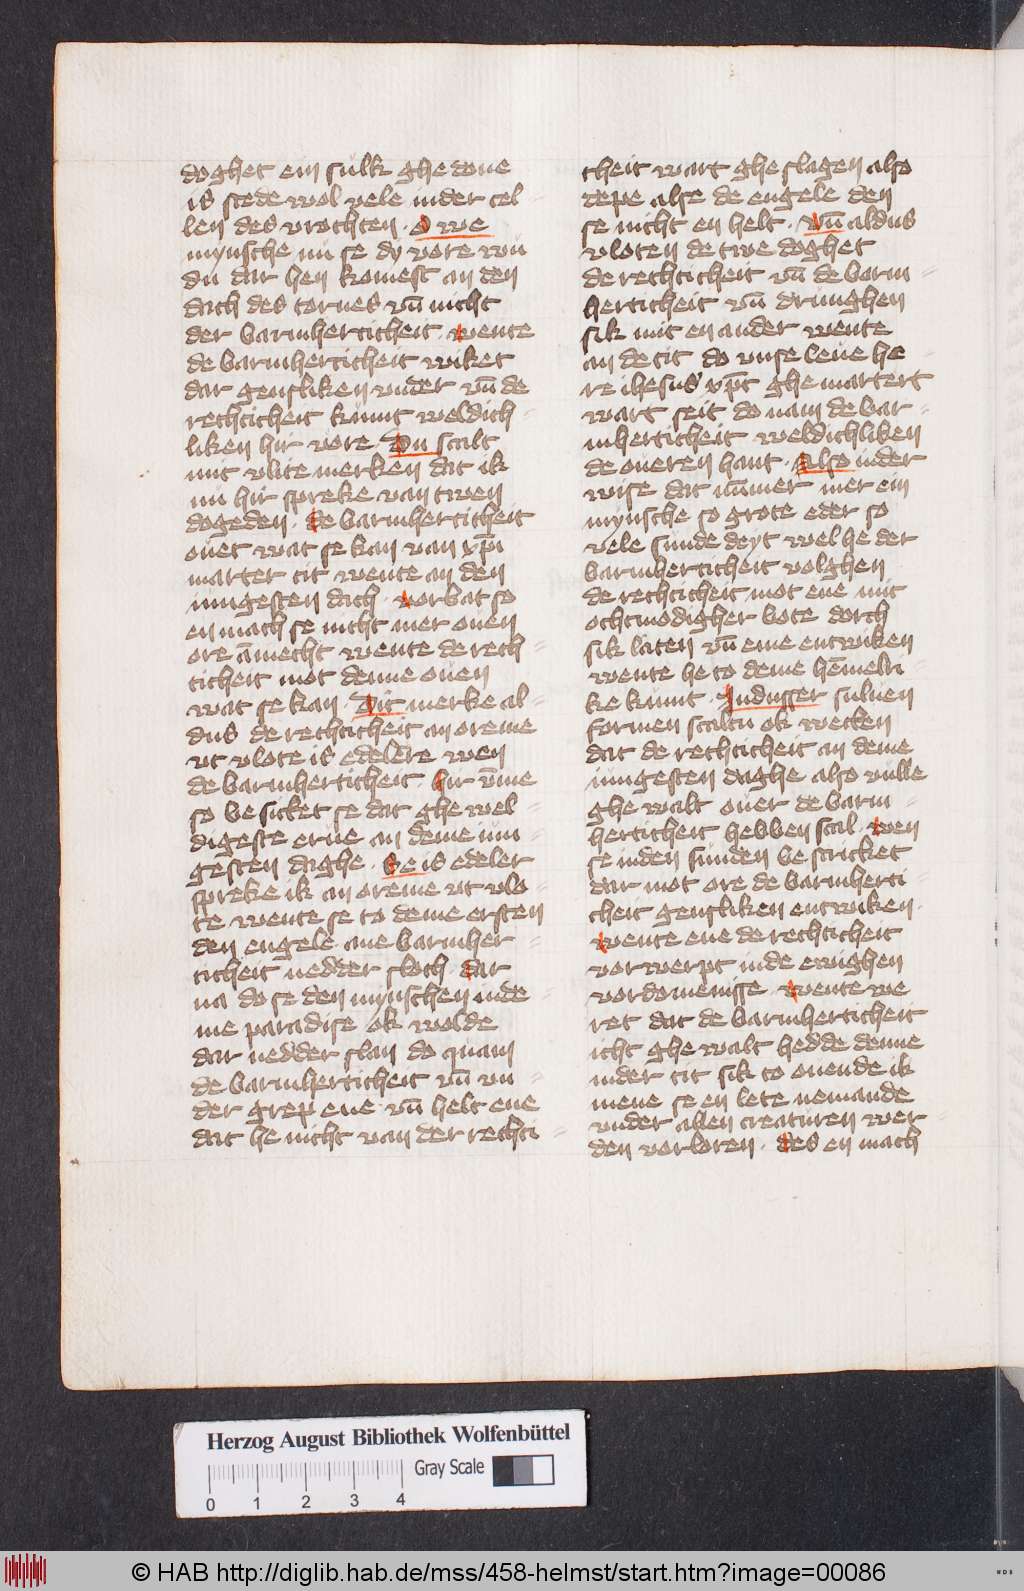 doghet ein sulk ghe done
is stede wol vele inder cel
len des vrochten . O we
mynsche nu se dy vore wu
du dar hen komest an den
dach des tornes vn̄ nicht
der barmherticheit . wente
de barmherticheit wiket
dar gensliken vnder vn̄ de
rechticheit kumt weldich
liken hir vore . Du scalt
mit vlite merken dat ik
nu hir spreke van twen
dogeden . de barmherticheit
ouet wat se kan van xp̄i
marter tit wente an den
iungesten dach . vorbat so
en mach se nicht mer ouen
ore āmecht wente de rech
ticheit mot denne ouen
wat se kan . Dit merke al
dus de rechticheit an oreme
vt vlote is edelere wen
de barmherticheit . hir v̄me
so be sicket se dat ghe wel
digeste erue an deme iun
gesten daghe . Se is edeler
spreke ik an oreme vt vlo
te wente se to deme ersten
den engele ane barmher
ticheit nedder sloch . dar
na do se den mynschen inde
me paradise ok wolde
dar nedder slan do quam
de barmherticheit vn̄ vn
der grep ene vn̄ helt ene
dat he nicht van der rechti
cheit wart ghe slagen also
depe alse de engele den
se nicht en helt . Vn̄ aldus
vloten de twe doghet
de rechticheit vn̄ de barm
herticheit vn̄ drunghen
sik mit en ander wente
an de tit do vnse leue he
re ihesus xp̄c ghe martert
wart seit do nam de bar
mherticheit weldichliken
de oueren hant . Also inder
wise dat nūmer mer ein
mynsche so grote eder so
vele sunde deyt wel he der
barmherticheit volghen
de rechticheit mot ene mit
othmodigher bote dorch
sik laten vn̄ eme entwiken
wente he to deme hēmelri
ke kumt . In dusser suluen
formen scaltu ok wecken
dat de rechticheit an deme
iungesten daghe also vulle
ghe walt ouer de barm
herticheit hebben scal . wen
se inden sunden be stricket
dar mot ore de barmherti
cheit gensliken entwiken .
wente ene de rechticheit
vorwerpt inde ewighen
vordomenisse . wente we
ret dat de barmherticheit
icht ghe walt hedde denne
inder tit sik to ouende ik
mene se en lete nemande
vnder allen creaturen wer
den vorloren . des en mach
Herzog August Bibliothek Wolfenbüttel
Gray Scale
0 1 2 3 4
© HAB http://diglib.hab.de/mss/458-helmst/start.htm?image=00086